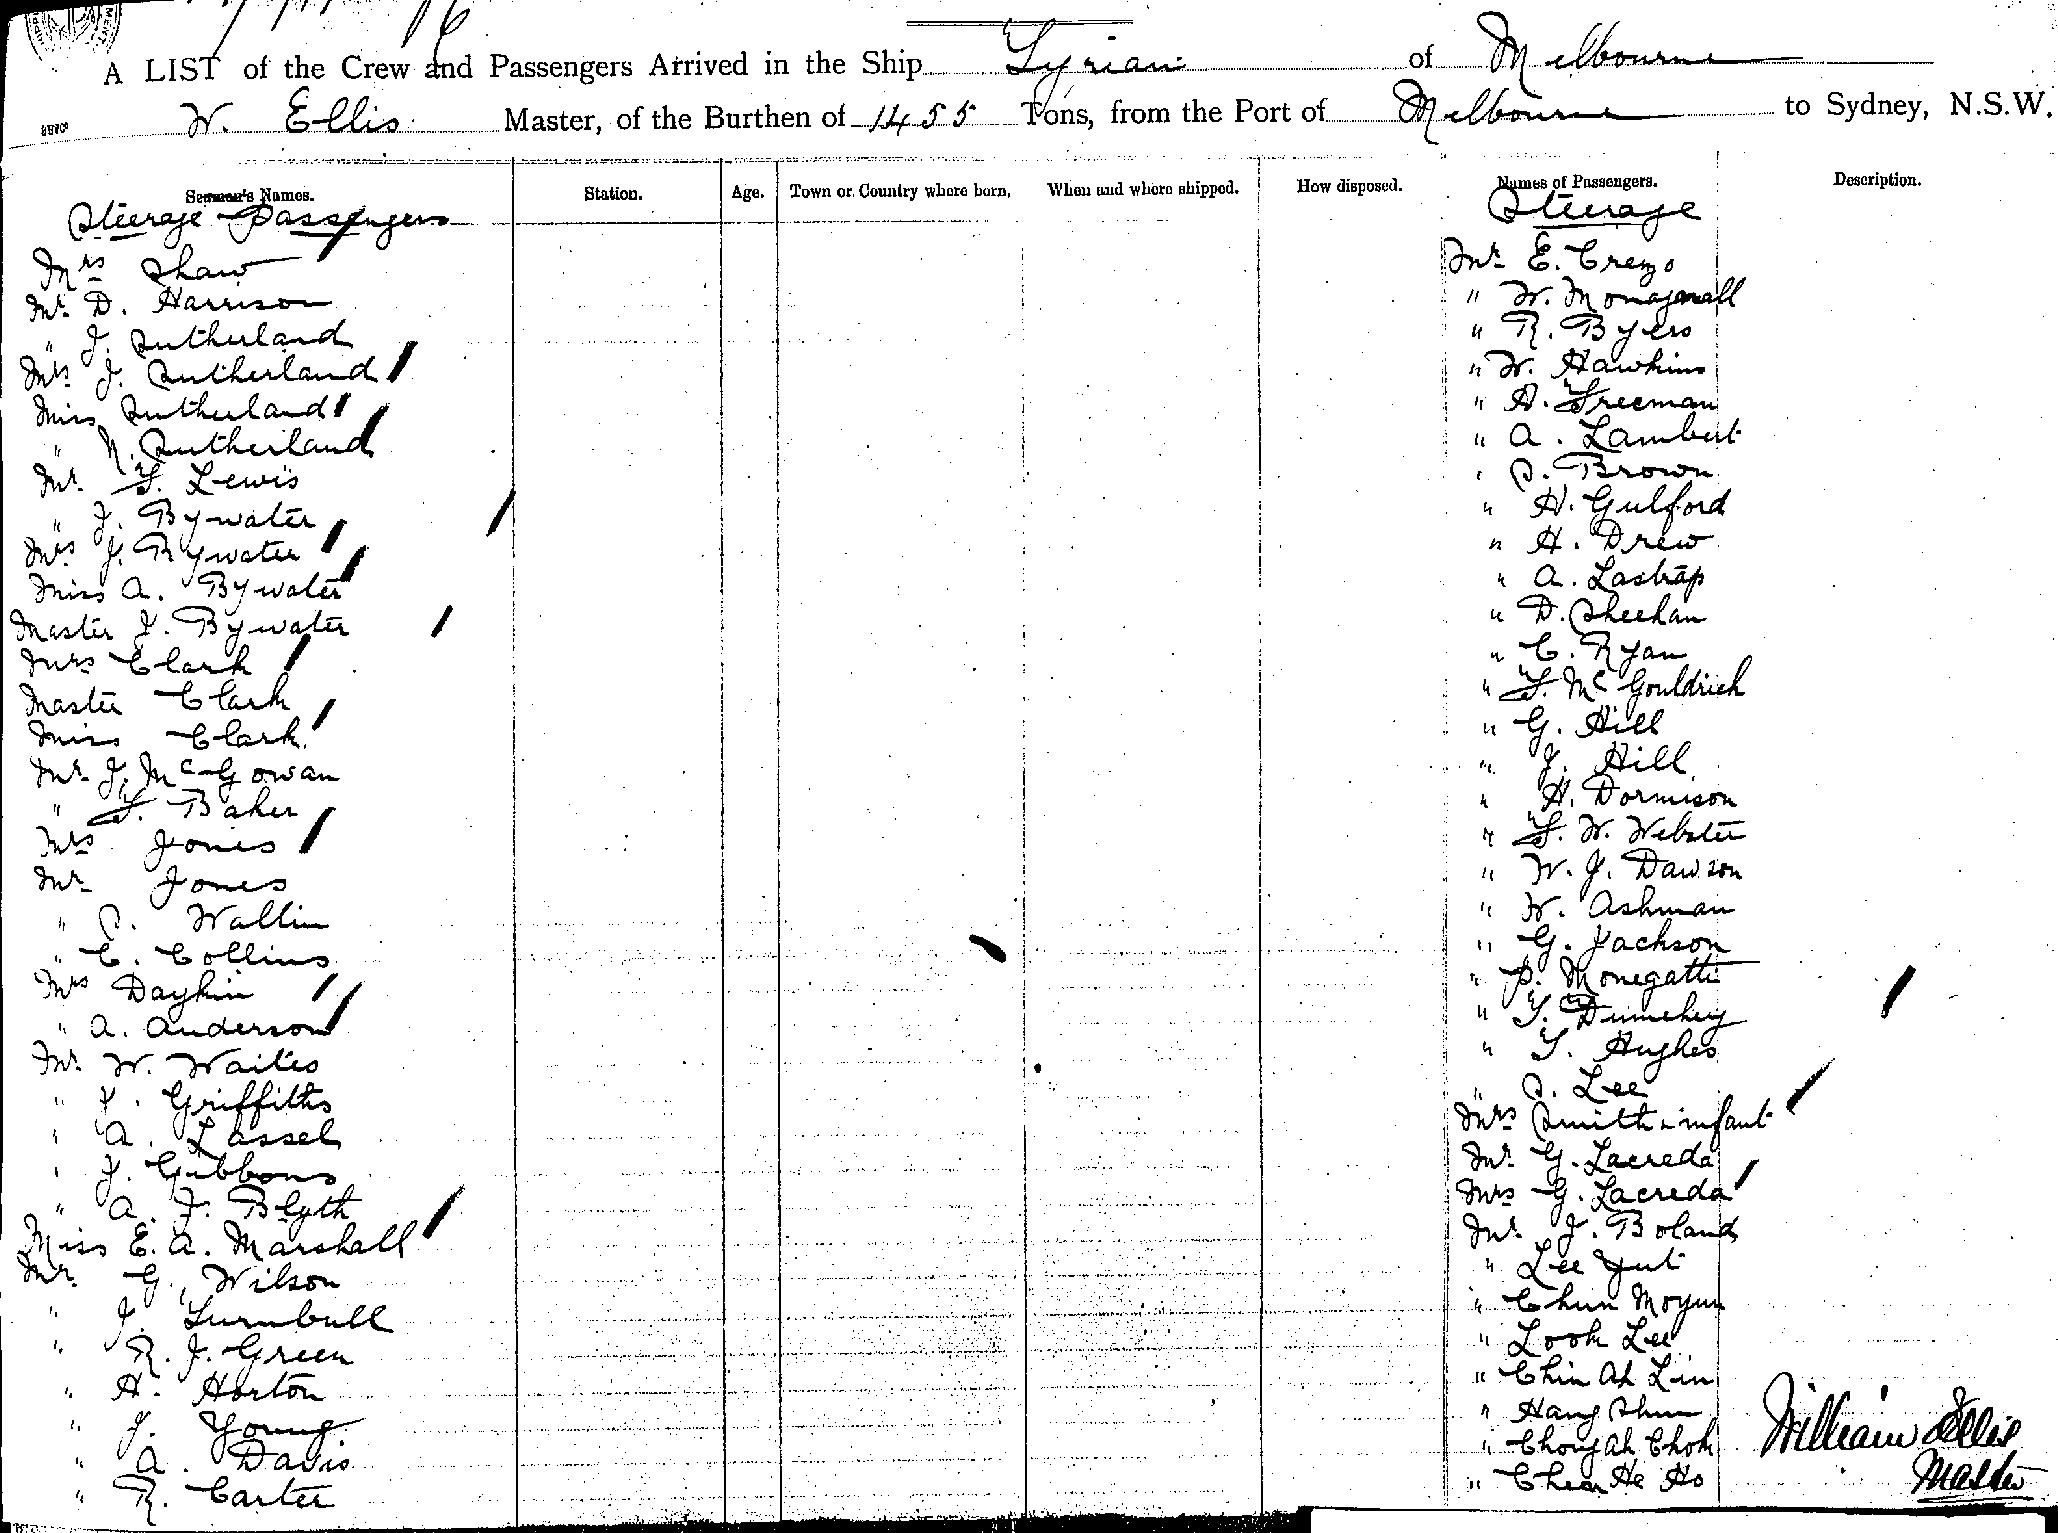 A LIST of the Crew and Passengers Arrived in the Ship Syrian of Melbourne
W. Ellis Master, of the Burthen of 1455 Tons, from the Port of Melbourne to Sydney, N.S.W.
Seamen's Names. Station. Age. Town or Country where born, When and where shipped. How disposed. Names of Passengers. Description.
Steerage Passengers
Mrs Shaw
Mr. D. Harrison
" J. Sutherland
Mrs J. Sutherland
Miss Sutherland
" N. Sutherland
Mr. F. Lewis
" J. Bywater
Mrs J. Bywater
Miss A. Bywater
Master J. Bywater
Mrs Clark
Master Clark
Miss Clark
Mr J. McGowan
" F. Baker
Mrs Jones
Mr Jones
" S. Wallin
" C. Collins
Mrs Daykin
" A. Anderson
Mr. W. Waites
" J. Griffiths
" A. Lassel
" J. Gibbons
" A. J. Blyth
Miss E. A. Marshall
Mr. G. Wilson
" J. Turnbull
" R. J. Green
" H. Horton
" J. Young
" A. Davis
" R. Carter
Steerage
Mr. E. Crezo
" W.
" R. Byers
" W. Hawkins
" A. Freeman
" A. Lambert
" S. Brown
" H. Gulford
" H. Drew
" A. Lastrap
" D. Sheehan
" C. Ryan
" F. McGouldrich
" G. Hill
" J. Hill
" H. Dormison
" F. W. Webster
" W. J. Dawson
" W. Ashman
" G. Jackson
" P. Monegatti
" T.
" T. Hughes
" S. Lee
Mrs Smith & infant
Mr. G. Lacreda
Mrs G. Lacreda
Mr. J. Boland
" Lee Yut
" Chun Moyun
" Look Lee
" Chin Ah Lin
" Hang Shun
" Chong Ah Chok
" Chen He Ho
William Ellis
Master